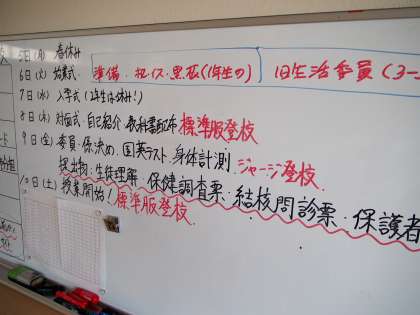 5日(月) 春休み
6日(火) 始業式
準備・机・イス・黒板(1年生の)
旧生活委員(3-
7日(水) 入学式(2年生は休み!)
8日(木) 対面式・自己紹介・教科書配布 標準服登校
9日(金) 委員・係決め・国英テスト・身体計測 ジャージ登校
提出物:生徒理解・保健調査票・結核問診票・保護者
10日(土) 授業開始! 標準服登校